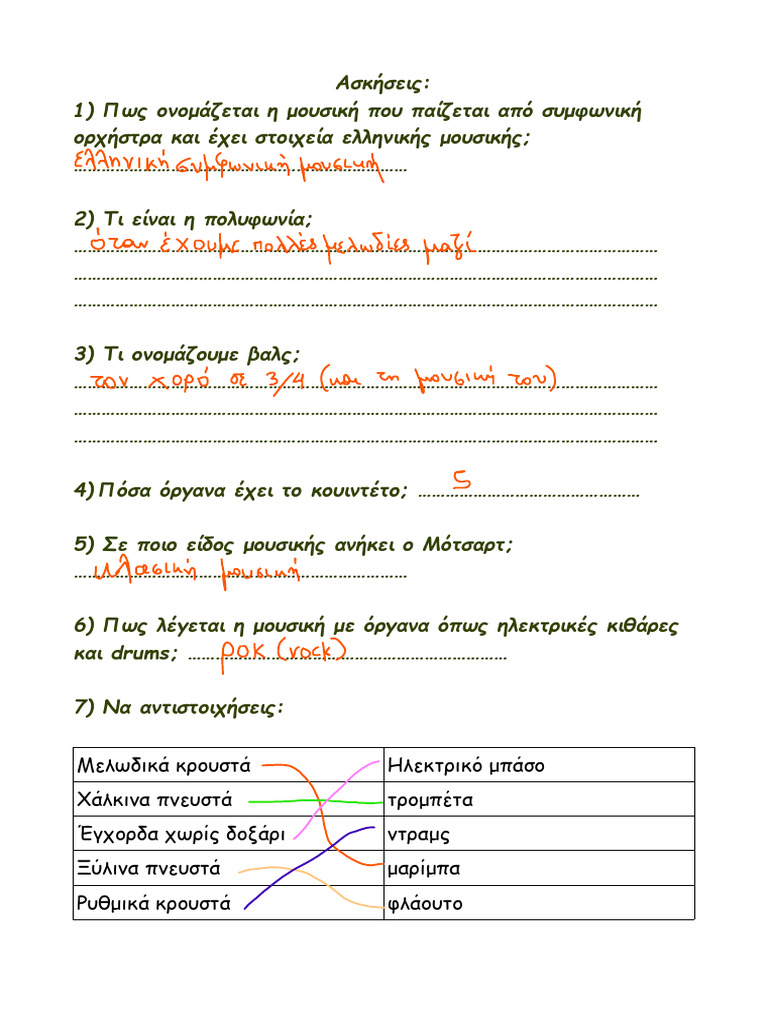 Ασκήσεις:
1) Πως ονομάζεται η μουσική που παίζεται από συμφωνική
ορχήστρα και έχει στοιχεία ελληνικής μουσικής;
ελληνική συμφωνική μουσική
2) Τι είναι η πολυφωνία;
όταν έχουμε πολλές μελωδίες μαζί
3) Τι ονομάζουμε βαλς;
τον χορό σε 3/4 (και τη μουσική του)
4) Πόσα όργανα έχει το κουιντέτο; 5
5) Σε ποιο είδος μουσικής ανήκει ο Μότσαρτ;
κλασική μουσική
6) Πως λέγεται η μουσική με όργανα όπως ηλεκτρικές κιθάρες
και drums; ροκ (rock)
7) Να αντιστοιχήσεις:
Μελωδικά κρουστά Ηλεκτρικό μπάσο
Χάλκινα πνευστά τρομπέτα
Έγχορδα χωρίς δοξάρι ντραμς
Ξύλινα πνευστά μαρίμπα
Ρυθμικά κρουστά φλάουτο